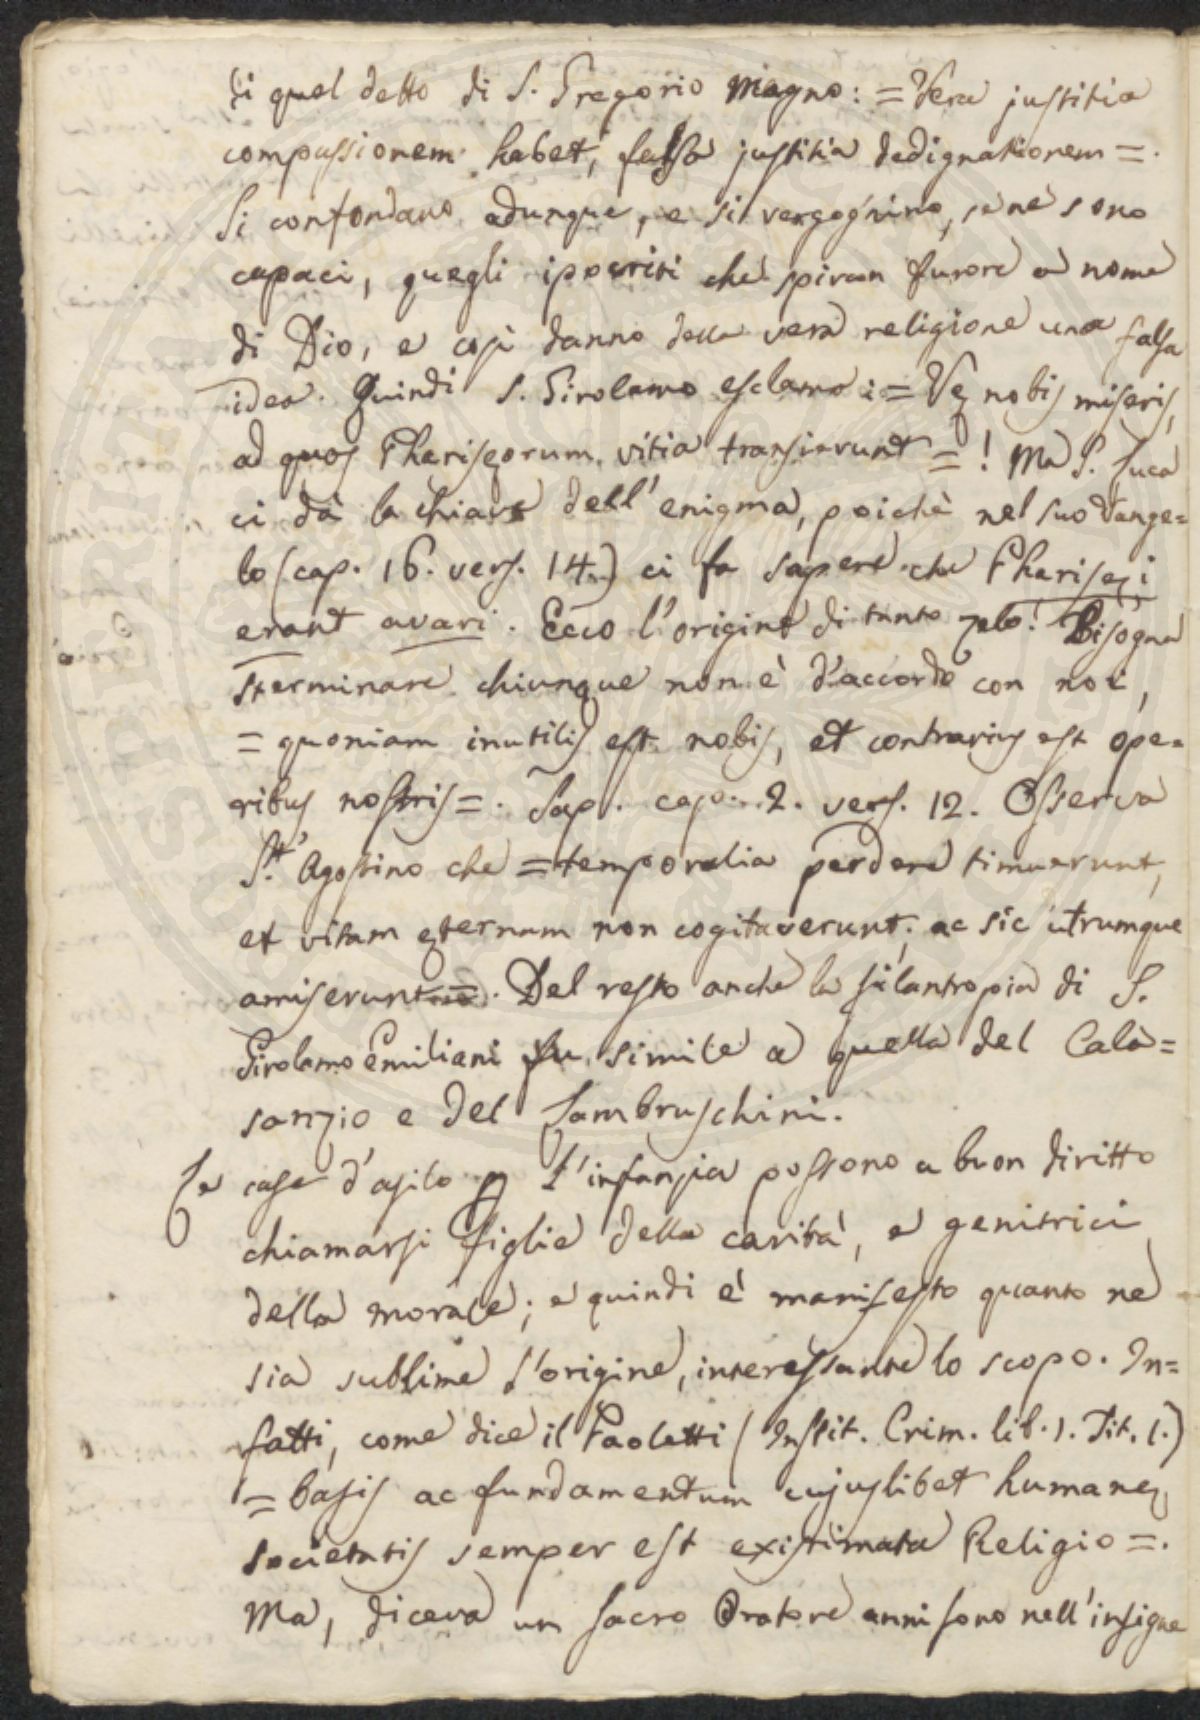 di quel detto di S. Gregorio Magno: = Vera justitia
compassionem habet, falsa justitia dedignationem =.
Si confondano adunque, e si vergognino, se ne sono
capaci, quegli ipocriti che spiran furore a nome
di Dio, e così danno della vera religione una falsa
idea. Quindi S. Girolamo esclama: = Vę nobis miseris,
ad quos Pharisęorum vitia transierunt = ! Ma S. Luca
ci dà la chiave dell'enigma, poichè nel suo Vange=
lo (cap. 16. vers. 14.) ci fa sapere che Pharisęi
erant avari. Ecco l'origine di tanto zelo! Bisogna
sterminare chiunque non è d'accordo con noi,
= quoniam inutilis est nobis, et contrarius est ope=
ribus nostris =. Sap. cap. 2. vers. 12. Osserva
S.t' Agostino che = temporalia perdere timuerunt,
et vitam ęternam non cogitaverunt; ac sic utrumque
amiserunt =. Del resto anche la filantropia di S.
Girolamo Emiliani fu simile a quella del Cala=
sanzio e del Lambruschini.
Le case d'asilo p l'infanzia possono a buon diritto
chiamarsi figlie della carità, e genitrici
della morale; e quindi è manifesto quanto ne
sia sublime l'origine, interessante lo scopo. In=
fatti, come dice il Paoletti (Instit. Crim. lib. 1. Tit. 1.)
= basis ac fundamentum cujuslibet humanę
societatis semper est existimata Religio =.
Ma, diceva un sacro Oratore anni sono nell'insigne